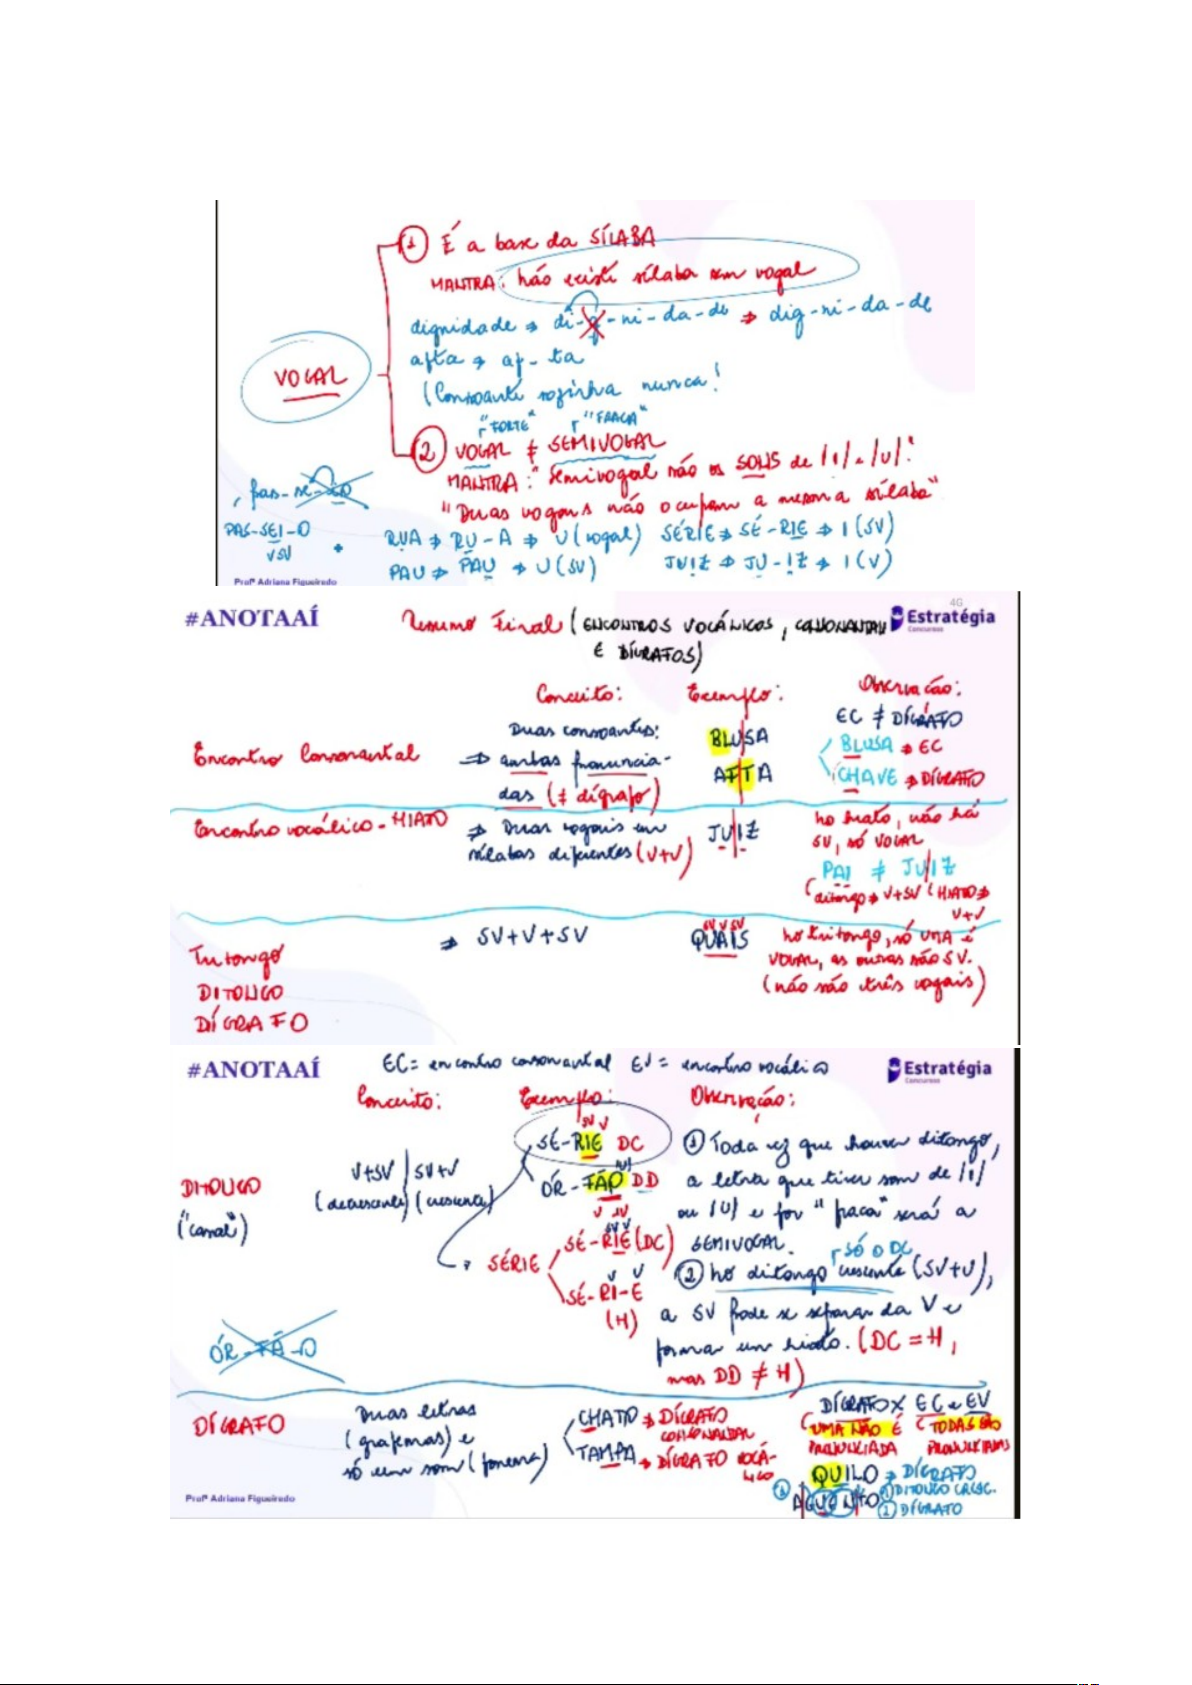 ① É a base da SÍLABA
MANTRA: não existe sílaba sem vogal
dignidade ⇒ di-g-ni-da-de ⇒ dig-ni-da-de
afta ⇒ af-ta
(Consoante sozinha nunca!
VOGAL
"FORTE" "FRACA"
② VOGAL ≠ SEMIVOGAL
MANTRA: "Semivogal são os SONS de /I/ e /U/!
"Duas vogais não ocupam a mesma sílaba"
pas-se-io
PAS-SEI-O
VSV
RUA ⇒ RU-A ⇒ U (vogal) SÉRIE ⇒ SÉ-RIE ⇒ I (SV)
PAU ⇒ PAU ⇒ U (SV) JUIZ ⇒ JU-IZ ⇒ I (V)
Profª Adriana Figueiredo
4G
#ANOTAAÍ Resumo Final (ENCONTROS VOCÁLICOS, CONSONANTAIS Estratégia
Concursos
E DÍGRAFOS)
Conceito: Exemplo: Observação:
Encontro Consonantal ⇒ Duas consoantes:
ambas pronuncia-
das (≠ dígrafo)
BLUSA
AFTA
EC ≠ DÍGRAFO
BLUSA ⇒ EC
CHAVE ⇒ DÍGRAFO
Encontro vocálico - HIATO ⇒ Duas vogais em
sílabas diferentes (V+V)
JUIZ
no hiato, não há
SV, só VOGAL
PAI ≠ JUIZ
(ditongo ⇒ V+SV (HIATO ⇒
V+V
Tritongo ⇒ SV+V+SV
SV V SV
QUAIS
no tritongo, só UMA é
VOGAL, as outras são SV.
(não são três vogais)
DITONGO
DÍGRAFO
#ANOTAAÍ EC = encontro consonantal EV = encontro vocálico Estratégia
Concursos
Conceito: Exemplo: Observação:
DITONGO
("canal")
V+SV / SV+V
(decrescente) (crescente)
SV V
SÉ-RIE DC
ÓR-FÃO DD
V SV
SÉRIE
SV V
SÉ-RIE (DC)
V V
SÉ-RI-E
(H)
① Toda vez que houver ditongo,
a letra que tiver som de /I/
ou /U/ e for "fraca" será a
SEMIVOGAL.
SÓ O DC
② no ditongo crescente (SV+V),
a SV pode se separar da V e
formar um hiato. (DC = H,
mas DD ≠ H)
ÓR-FÃ-O
DÍGRAFO
Duas letras
(grafemas) e
só um som (fonema)
CHATO ⇒ DÍGRAFO
CONSONANTAL
TAMPA ⇒ DÍGRAFO VOCÁ-
LICO
DÍGRAFO X EC e EV
(UMA NÃO É (TODAS SÃO
PRONUNCIADA PRONUNCIADAS
QUILO ⇒ DÍGRAFO
AGUENTO ① DITONGO CRESC.
② DÍGRAFO
Profª Adriana Figueiredo